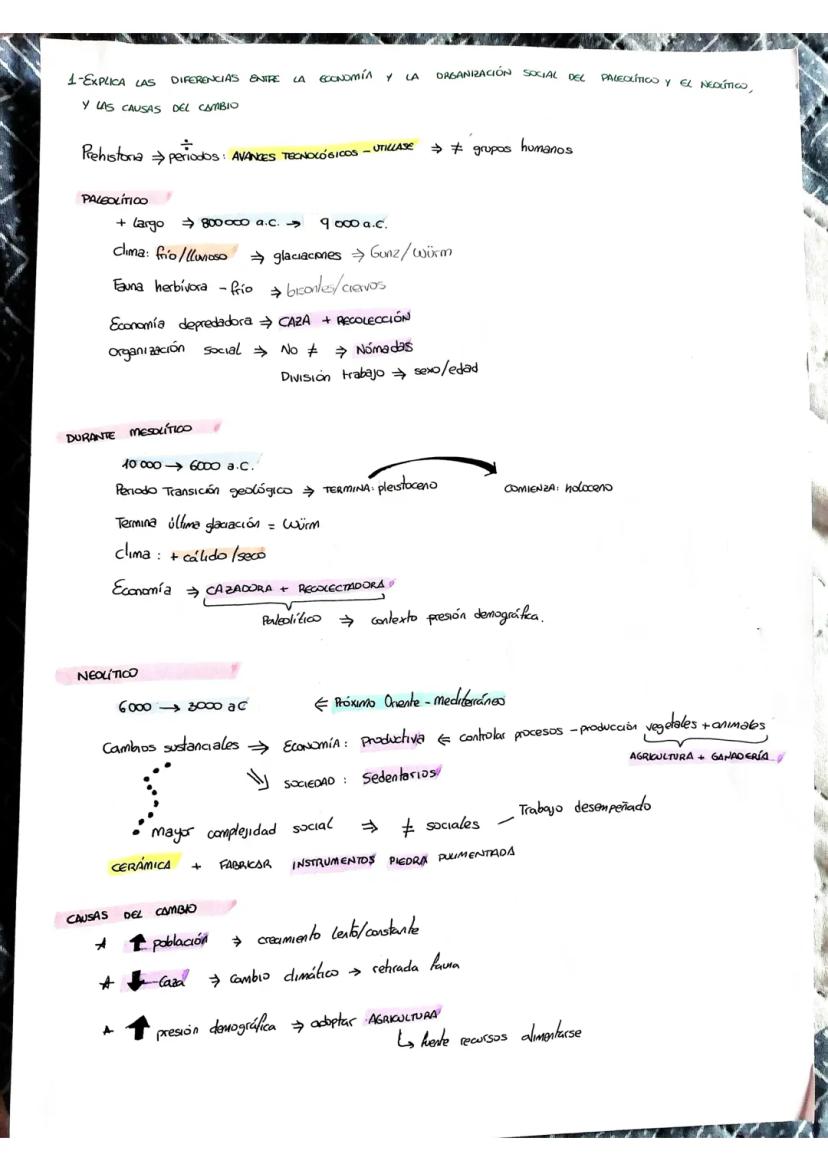 1-EXPLICA LAS DIFERENCIAS ENTRE LA ECONOMÍA Y LA ORGANIZACIÓN SOCIAL DEL PALEOLÍTICO Y EL NEOLÍTICO,
Y LAS CAUSAS DEL CAMBIO
Prehistoria ⇒ ÷ periodos: AVANCES TECNOLÓGICOS - UTILLASE ⇒ ≠ grupos humanos
PALEOLÍTICO
+ largo ⇒ 800 000 a.C. → 9 000 a.C.
Clima: frío/lluvioso ⇒ glaciaciones ⇒ Gunz/Würm
Fauna herbívora - frío ⇒ bisontes/ciervos
Economía depredadora ⇒ CAZA + RECOLECCIÓN
Organización social ⇒ No ≠ ⇒ Nómadas
División trabajo ⇒ sexo/edad
DURANTE MESOLÍTICO
10 000 → 6000 a.C.
Periodo Transición geológico ⇒ TERMINA: pleistoceno COMIENZA: holoceno
Termina última glaciación = Würm
Clima: + cálido/seco
Economía ⇒ CAZADORA + RECOLECTADORA
Paleolítico ⇒ contexto presión demográfica.
NEOLÍTICO
6000 → 3000 aC ⇐ Próximo Oriente - Mediterráneo
Cambios sustanciales ⇒ ECONOMÍA: Productiva ⇐ controlar procesos - producción vegetales + animales
AGRICULTURA + GANADERÍA
⇘ SOCIEDAD: Sedentarios
mayor complejidad social ⇒ ≠ sociales - Trabajo desempeñado
CERÁMICA + FABRICAR INSTRUMENTOS PIEDRA PULIMENTADA
CAUSAS DEL CAMBIO
⬆ población ⇒ crecimiento lento/constante
⬇ Caza ⇒ cambio climático → retirada fauna
⬆ presión demográfica ⇒ adoptar AGRICULTURA
↳ fuente recursos alimentarse